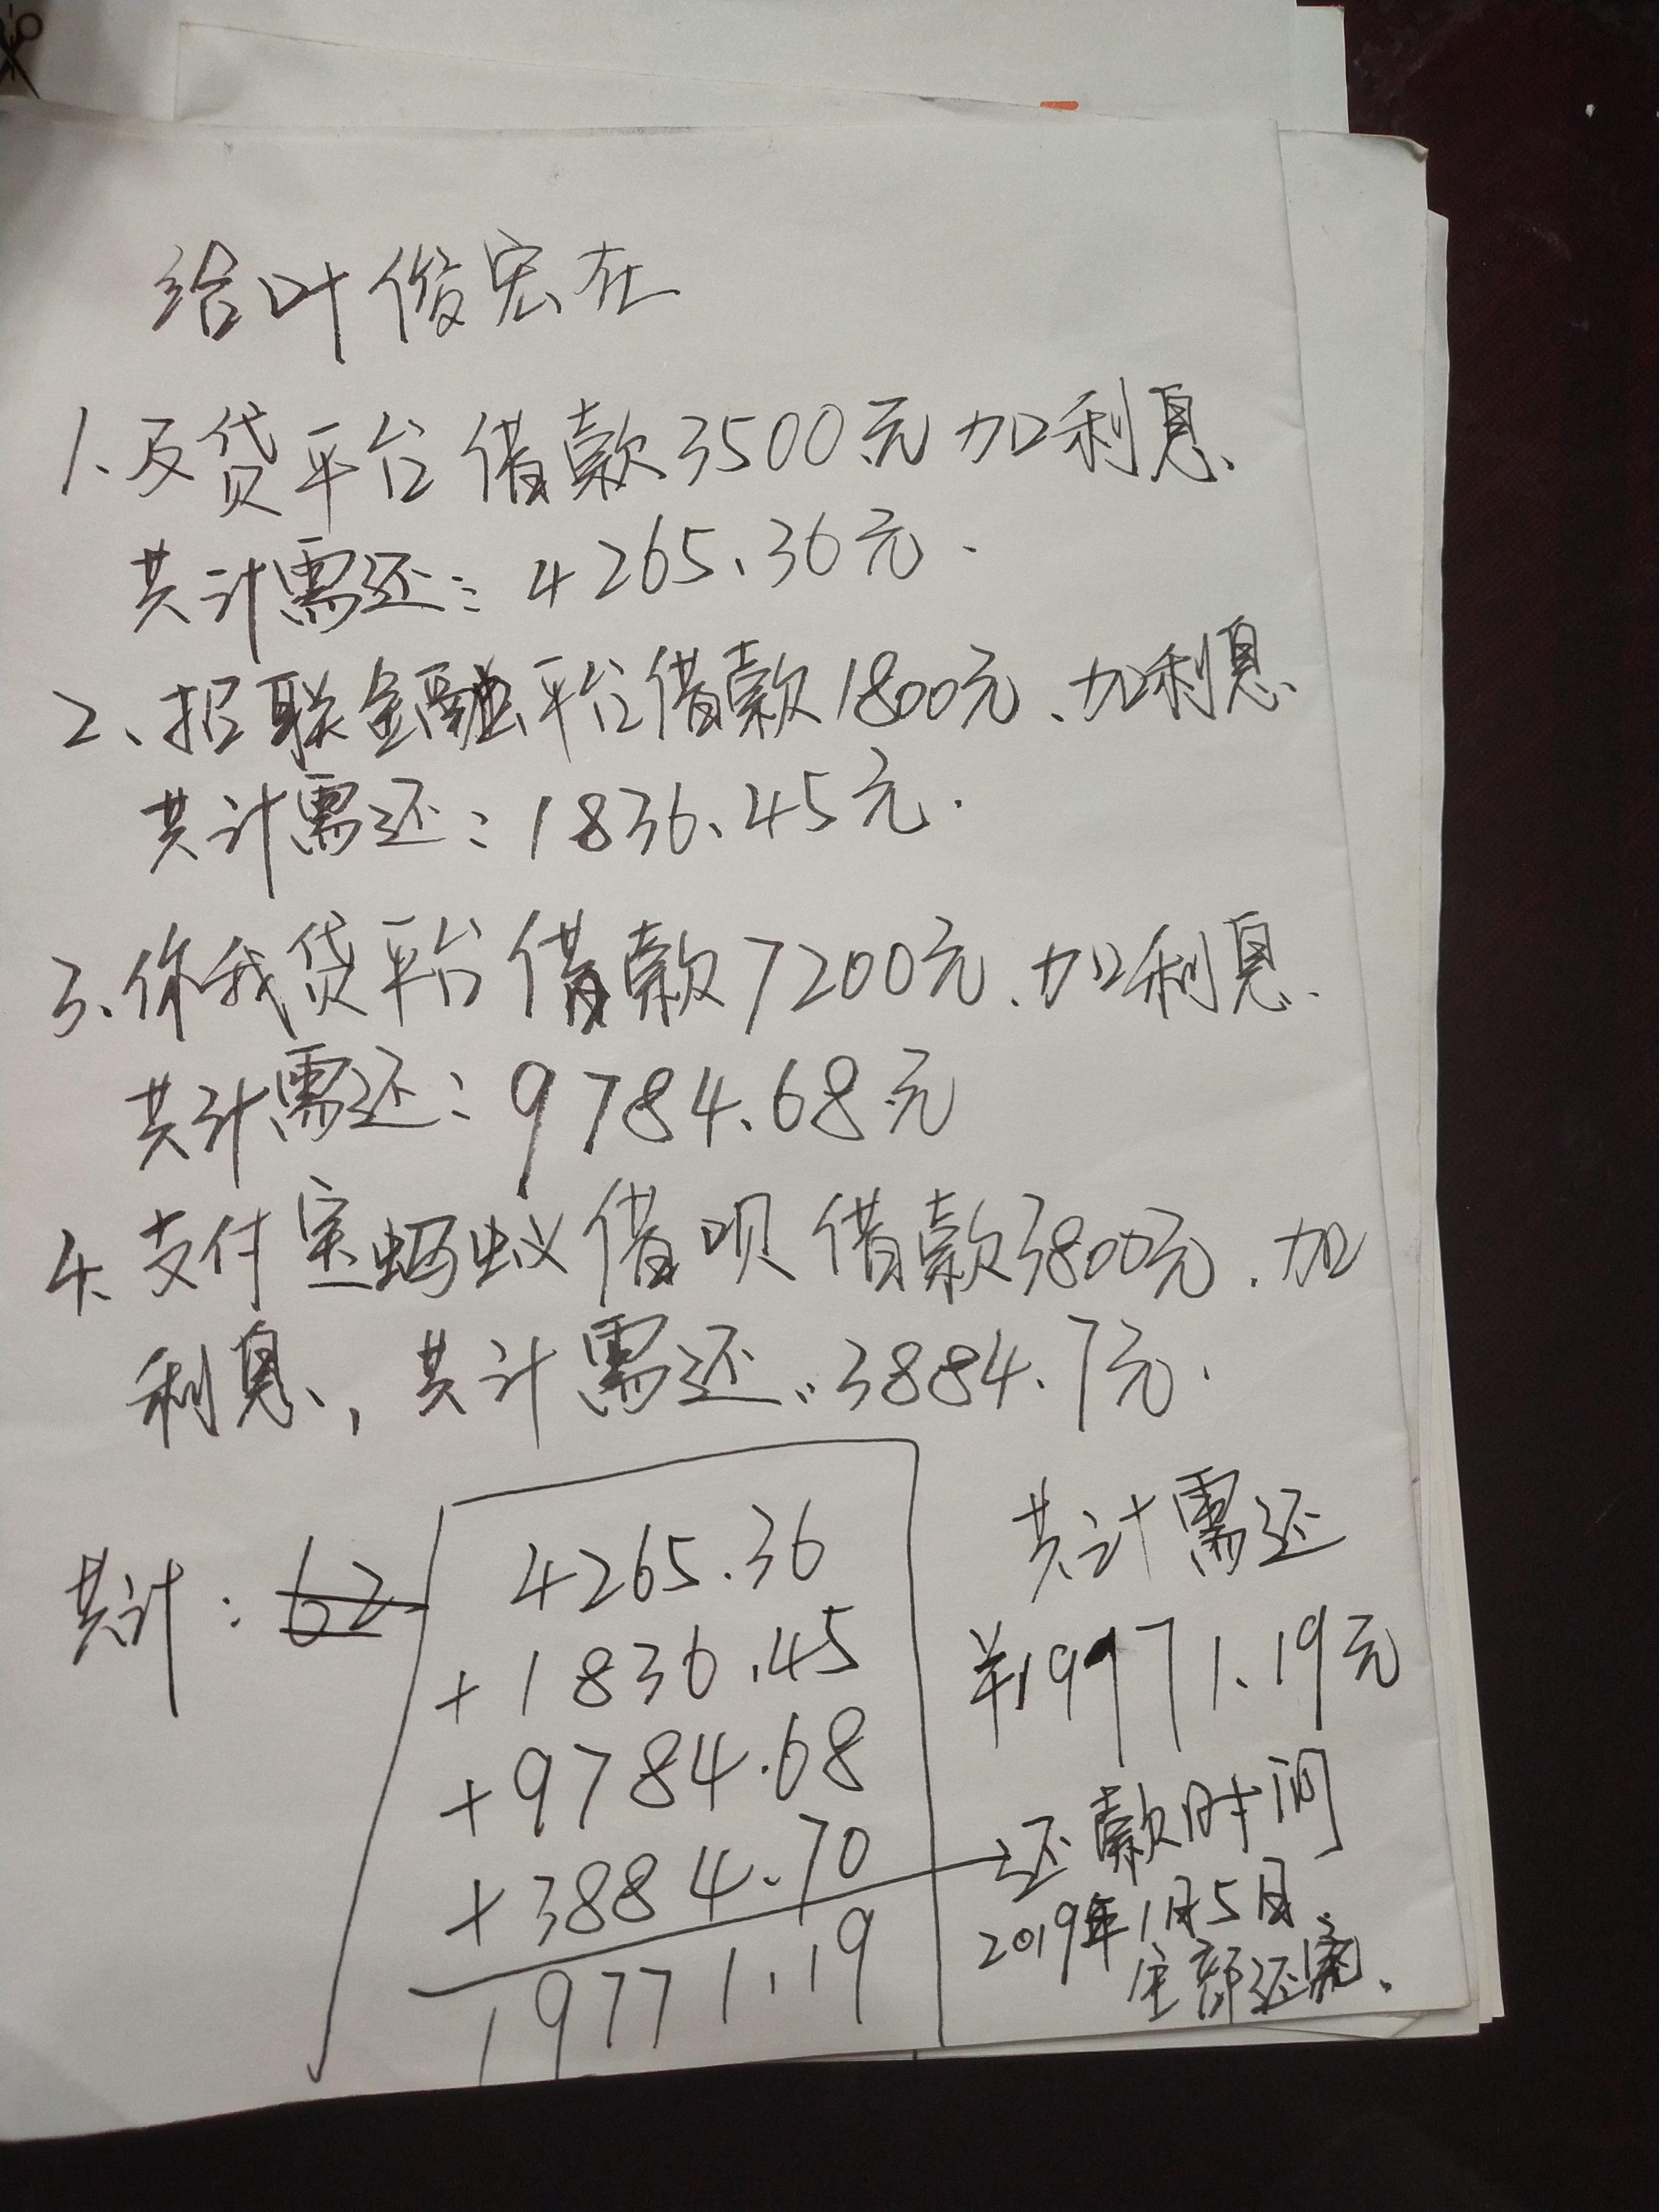 给叶俊宏在
1、及贷平台借款3500元加利息、
共计需还：4265.36元.
2、招联金融平台借款1800元、加利息、
共计需还：1836.45元.
3、你我贷平台借款7200元、加利息、
共计需还：9784.68元
4、支付宝蚂蚁借呗借款3800元、加
利息、，共计需还：3884.7元.
共计：62
4265.36
+1836.45
+9784.68
+3884.70
19771.19
共计需还
¥19771.19元
还款时间
2019年1月5日、
全部还完、